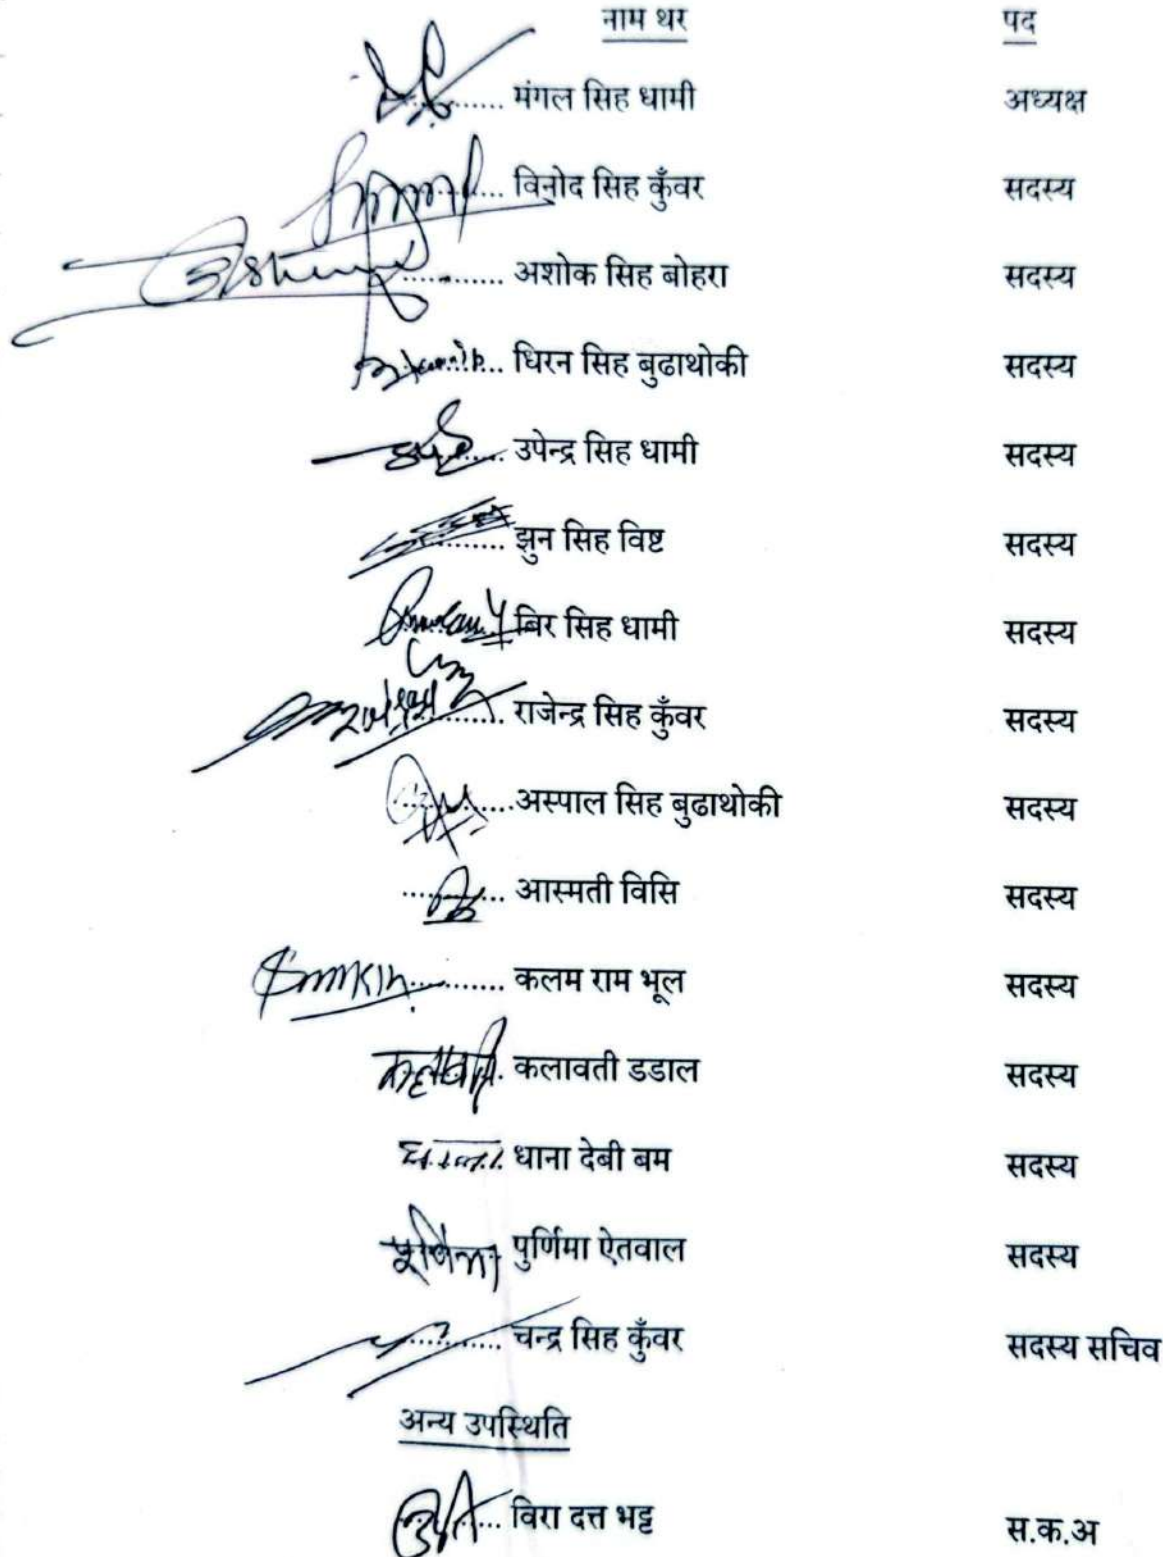 नाम थर पद
........ मंगल सिह धामी अध्यक्ष
........ विनोद सिह कुँवर सदस्य
............ अशोक सिह बोहरा सदस्य
........ धिरन सिह बुढाथोकी सदस्य
........ उपेन्द्र सिह धामी सदस्य
.......... झुन सिह विष्ट सदस्य
........ बिर सिह धामी सदस्य
राजेन्द्र ........ राजेन्द्र सिह कुँवर सदस्य
............अस्पाल सिह बुढाथोकी सदस्य
............ आस्मती विसि सदस्य
............ कलम राम भूल सदस्य
कलावती. कलावती डडाल सदस्य
धाना धाना देबी बम सदस्य
पूर्णिमा पुर्णिमा ऐतवाल सदस्य
............ चन्द्र सिह कुँवर सदस्य सचिव
अन्य उपस्थिति
.... विरा दत्त भट्ट स.क.अ